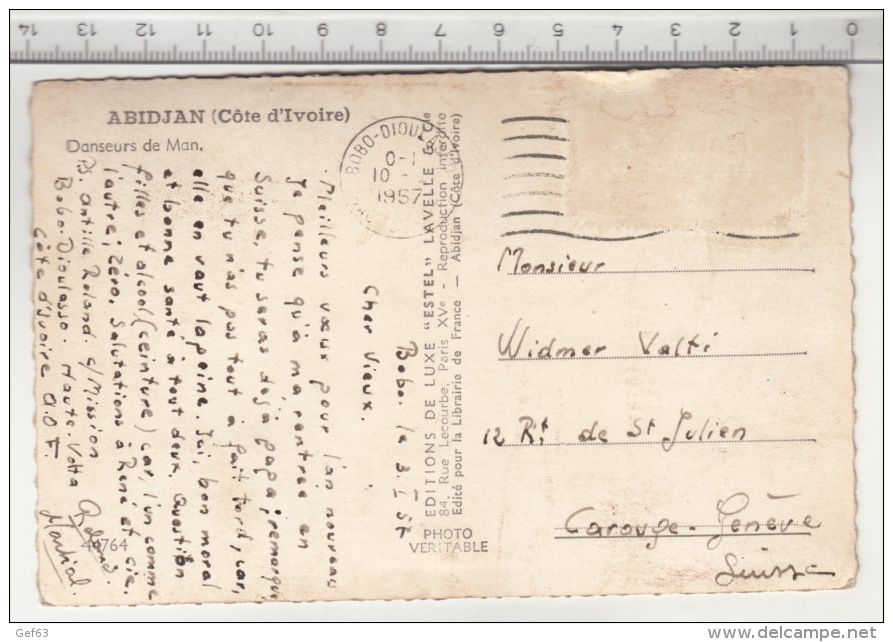 14 13 12 11 10 9 8 7 6 5 4 3 2 1 0
ABIDJAN (Côte d'Ivoire)
Danseurs de Man.
BOBO-DIOUL
10 -
1957
EDITIONS DE LUXE "ESTEL" LAVELLE & Cie
84, Rue Lecourbe, Paris XVe - Reproduction interdite
Edité pour la Librairie de France — Abidjan (Côte d'Ivoire)
PHOTO
VERITABLE
44764
Bobo. le 3. I 57
Cher Vieux.
Meilleurs vœux pour l'an nouveau
Je pense qu'à ma rentrée en
Suisse, tu seras déjà papa; remarque
que tu n'as pas tout à fait tord, car,
elle en vaut la peine. Ici, bon moral
et bonne santé à tout deux. Question
filles et alcool (ceinture) car, l'un comme
l'autre; Zéro. Salutations à René et cie.
B. Antille Roland c/Mission
Bobo-Dioulasso. Haute-Volta
Côte d'Ivoire A.O.F.
Roland.
Martial.
Monsieur
Widmer Valti
12 Rt. de St Julien
Carouge-Genève
Suisse
Gef63
www.delcampe.net